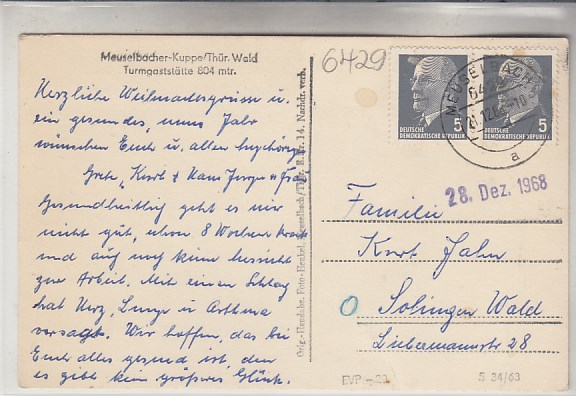 Meuselbacher-Kuppe/Thür. Wald
Turmgaststätte 804 mtr.
6429
Herzliche Weihnachtsgrüsse u.
ein gesundes, neues Jahr
wünschen Euch u. allen
Grete, Kurt + Hans Jürgen
Gesundheitlich geht es mir
nicht gut, schon 8 Wochen krank
und auch noch keine Aussicht
zur Arbeit. Mit einem Schlag
hat Herz, Lunge u. Asthma
versagt. Wir hoffen, das bei
Euch alles gesund ist, denn
es gibt kein größeres Glück.
DEUTSCHE
DEMOKRATISCHE REPUBLIK
5
DEUTSCHE
DEMOKRATISCHE REPUBLIK
5
MEUSELBACH
a
28. Dez. 1968
Familie
Kurt Jahn
Solingen Wald
Liebermannstr 28
EVP
S 34/63